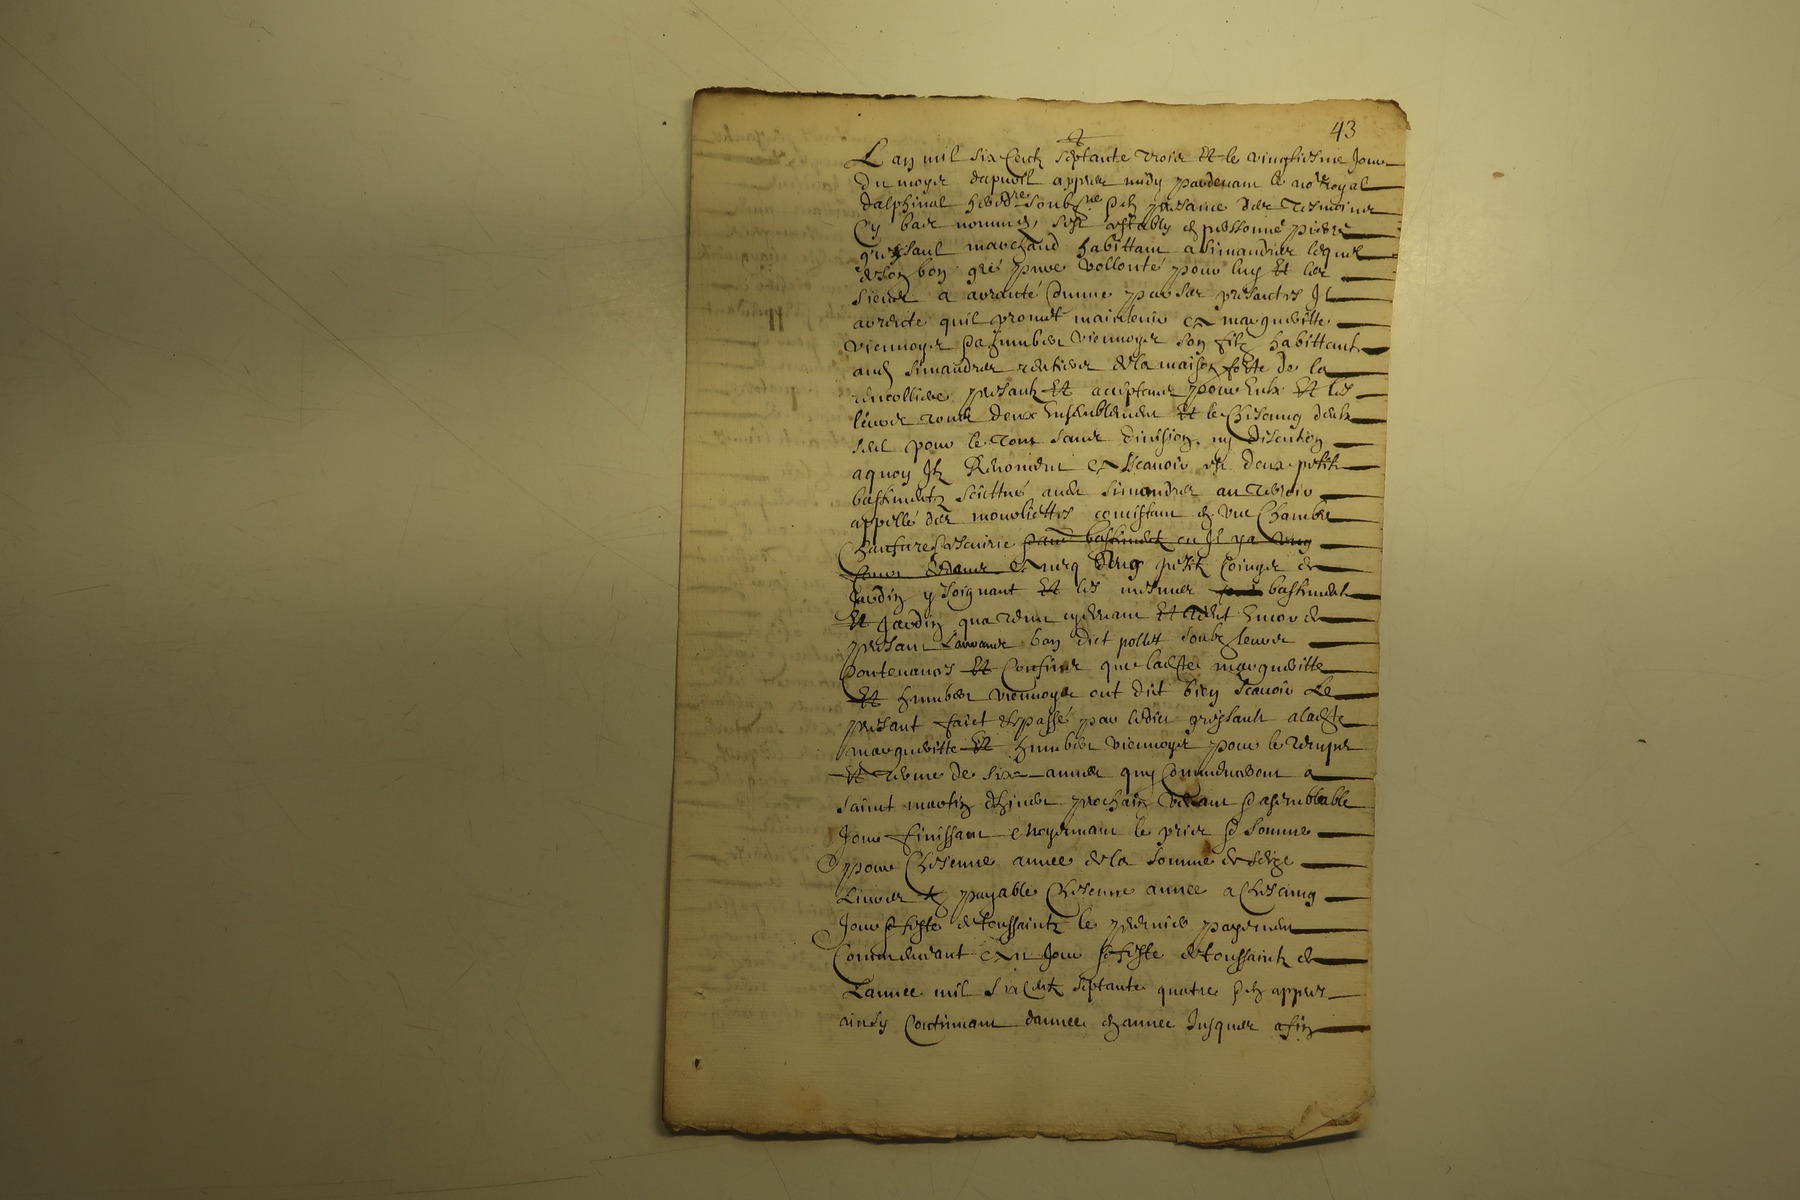 43
L an mil six Centz septante trois Et le vingtiesme Jour
du moys dapvril appres midy pardevant le no.re Royal
dalphinal heredre soubne & en presance des tesmoins
Cy bas nommes, sest estably en personne pierre
grissaul marchand habittant a simandres lequel
de son bon gre pure vollonté pour luy Et les
siens a arranté Comme par ses presantes Il
arrente quil promet maintenir a margueritte
viennoys & a humber viennoys son filz habittantz
aud simandres rentiers de la maison forte de la
presantz Et acceptans pour Eulx Et les
leurs tous deux Ensemblement Et le Chescung deulx
seul pour le tout sans division ny discution
aquoy Ilz Renoncent a scavoir est deux petitz
bastimentz scittué aud simandres au terroir
appellé des consistant en une Chambre
bastiment ou Il ya ung
petitz de
Jardin y Joignant Et les mesmes bastiment
Et Jardin que tenu cydevant Et tient Encor de
presant ban dict pollet soubz leurs
Contenances Et Confins que ladte margueritte
Et humber viennoys ont dict bien scavoir Le
presant faict & passé par ledict grissault a ladte
margueritte Et humber viennoys pour le temps
Et terme de six annees quy Commenceront a
saint martin dhiver prochain venant & a semblable
Jour finissant moyennant le prix & somme
pour Chescune annee de la somme de seize
Livres payable Chescune annee a Chescung
Jour & feste de toussaintz le premier payement
Commencant au Jour & feste de toussaintz de
Lannee mil six Centz septante quatre & en appres
ainsy Continuant dannee en annee Jusques a fin